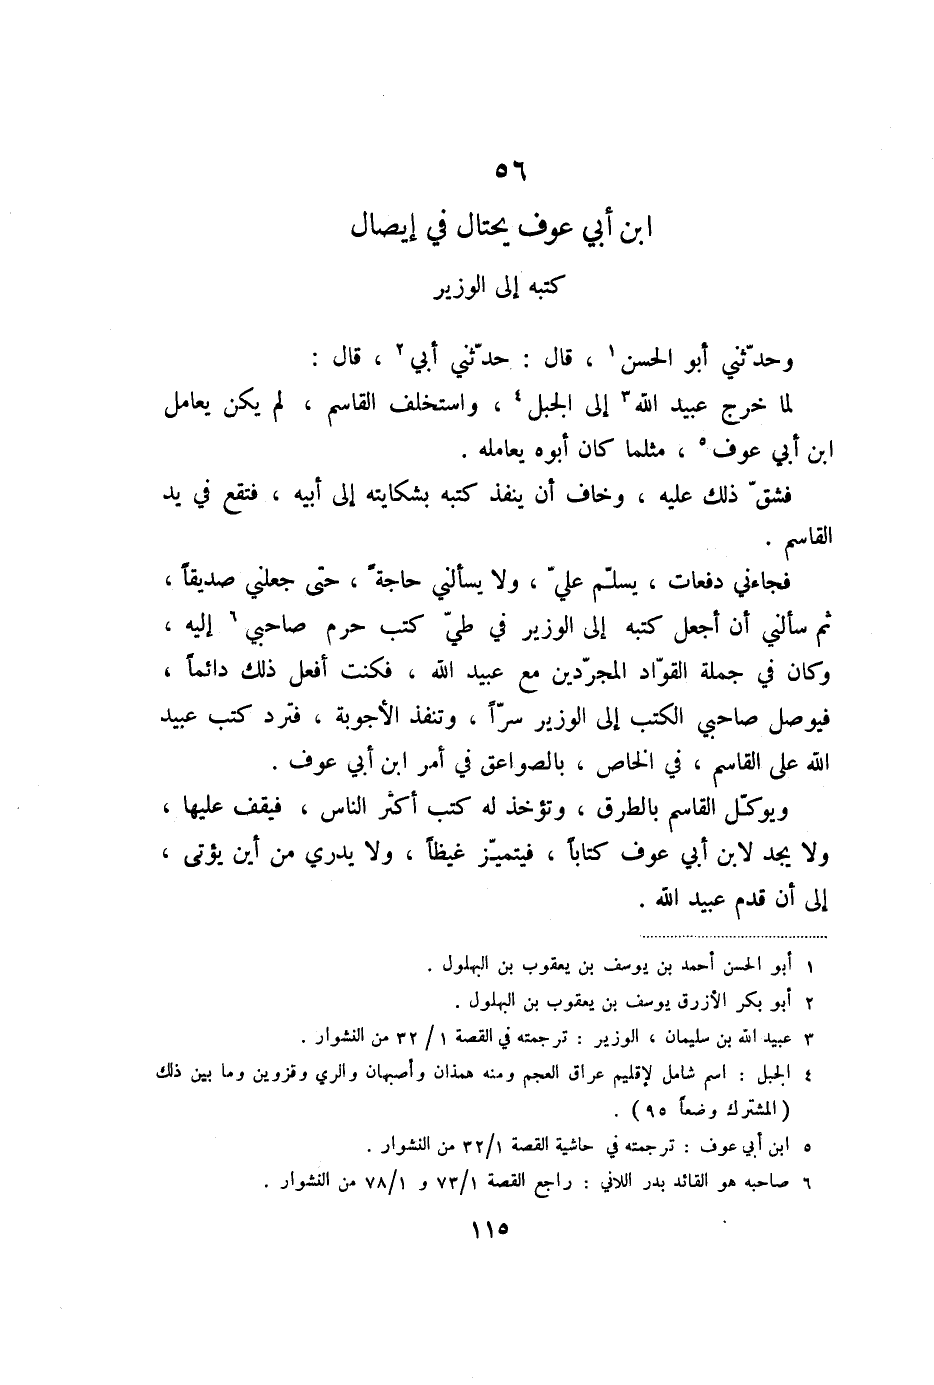 ٥٦
ابن أبي عوف يحتال في إيصال
كتبه إلى الوزير
وحدّثني أبو الحسن ١ ، قال : حدّثني أبي ٢ ، قال :
لما خرج عبيد الله ٣ إلى الجبل ٤ ، واستخلف القاسم ، لم يكن يعامل
ابن أبي عوف ٥ ، مثلما كان أبوه يعامله .
فشقّ ذلك عليه ، وخاف أن ينفذ كتبه بشكايته إلى أبيه ، فتقع في يد
القاسم .
فجاءني دفعات ، يسلّم عليّ ، ولا يسألني حاجةً ، حتّى جعلني صديقاً ،
ثم سألني أن أجعل كتبه إلى الوزير في طيّ كتب حرم صاحبي ٦ إليه ،
وكان في جملة القوّاد المجرّدين مع عبيد الله ، فكنت أفعل ذلك دائماً ،
فيوصل صاحبي الكتب إلى الوزير سرّاً ، وتنفذ الأجوبة ، فترد كتب عبيد
الله على القاسم ، في الخاص ، بالصواعق في أمر ابن أبي عوف .
ويوكّل القاسم بالطرق ، وتؤخذ له كتب أكثر الناس ، فيقف عليها ،
ولا يجد لابن أبي عوف كتاباً ، فيتميّز غيظاً ، ولا يدري من أين يؤتى ،
إلى أن قدم عبيد الله .
١ أبو الحسن أحمد بن يوسف بن يعقوب بن البهلول .
٢ أبو بكر الأزرق يوسف بن يعقوب بن البهلول .
٣ عبيد الله بن سليمان ، الوزير : ترجمته في القصة ١/ ٣٢ من النشوار .
٤ الجبل : اسم شامل لإقليم عراق العجم ومنه همذان وأصبهان والري وقزوين وما بين ذلك
( المشترك وضعاً ٩٥ ) .
٥ ابن أبي عوف : ترجمته في حاشية القصة ٣٢/١ من النشوار .
٦ صاحبه هو القائد بدر اللاني : راجع القصة ٧٣/١ و ٧٨/١ من النشوار .
١١٥